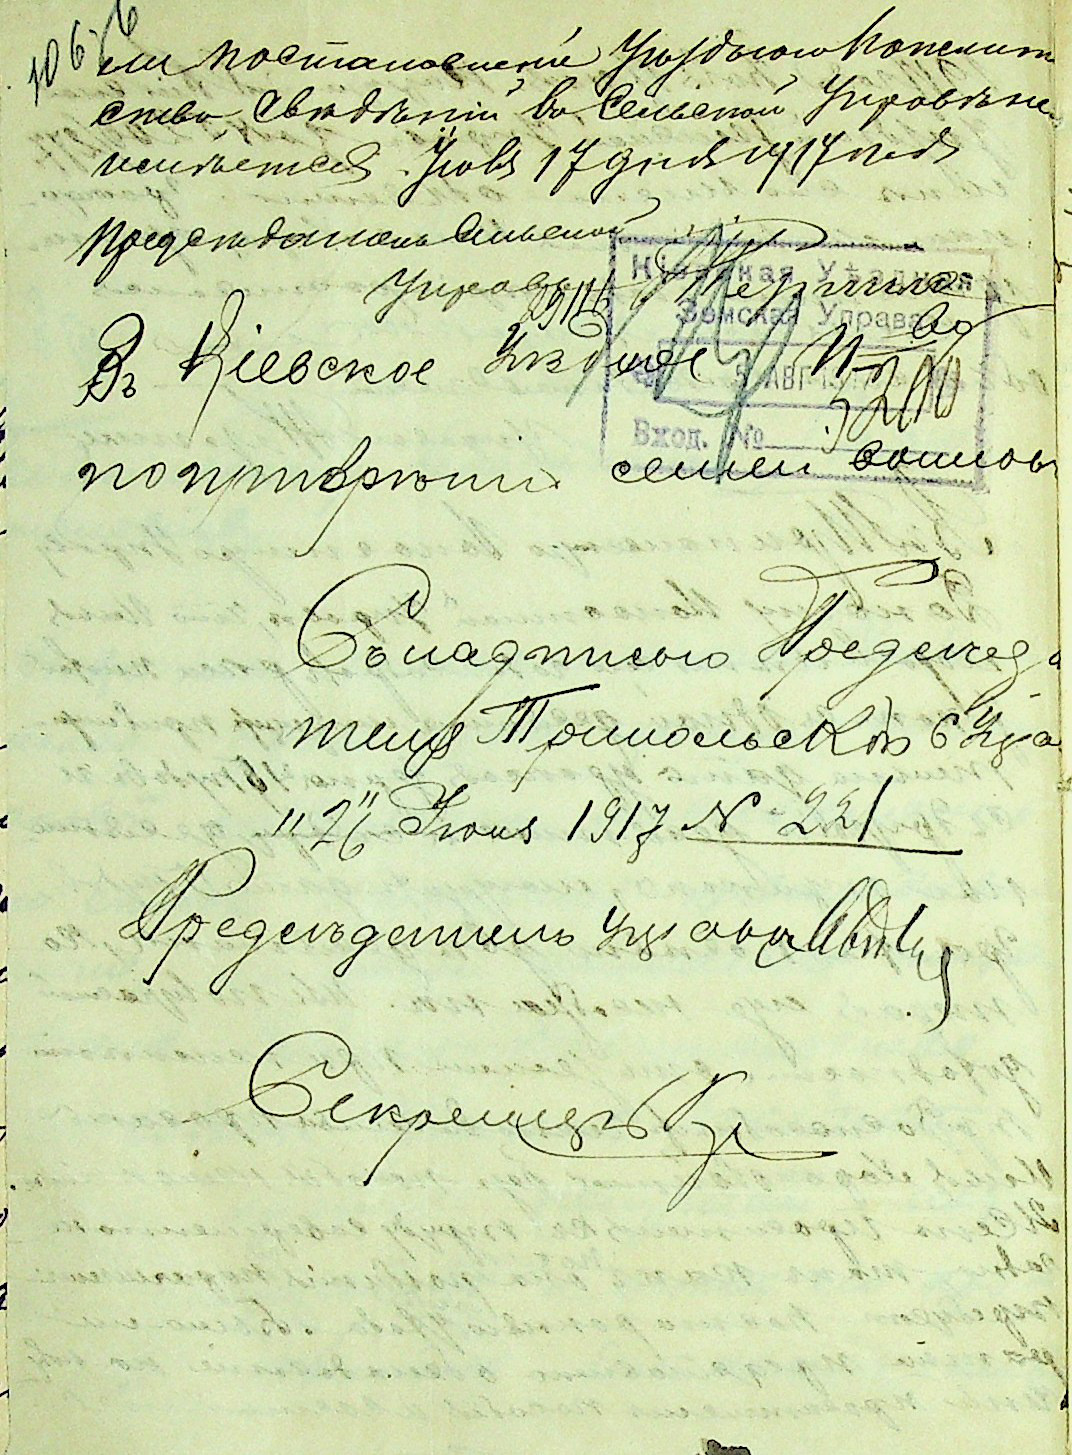 106
ели постановленій Уѣзднаго Попечит
ства Свѣдѣній въ Сельской Управѣ не
имѣется. 17 дня 1917 года
Предсѣдатель Сельской
Управы
Кіевская Уѣздная
Земская Управа
5 АВГ 1917
Вход. №
Въ Кіевское Уѣздное П-во
5200
по призрѣнію семей воиновъ
Съ надписью Председа
теля Трипольской В Упра
"26" Июня 1917 № 221
Председатель Управы
Секретарь